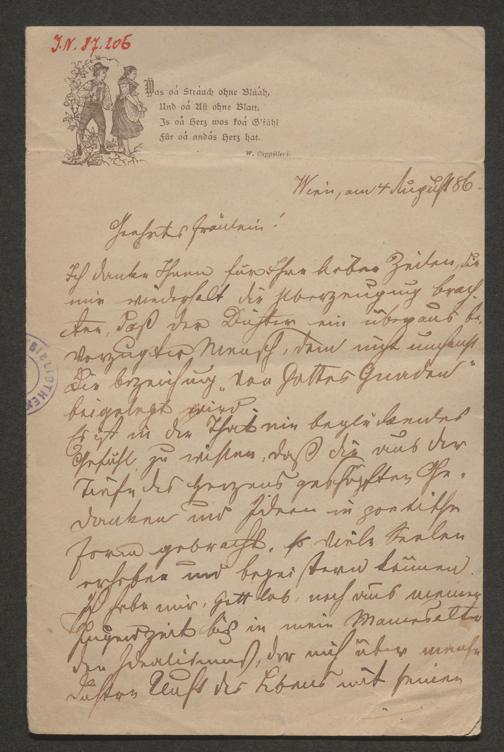 J.N. 87.206
Was oá Strauch ohne Blüah,
Und oá Ast ohne Blatt,
Is oá Herz wos koá G'fühl
Für oá andás Herz hat.
W. Cappilleri.
Wien, am 4 August 86.
Geehrtes Fräulein!
Ich danke Ihnen für Ihre lieben Zeilen, die
mir wiederholt die Überzeugung brach
ten, daß der Dichter ein überaus be-
vorzugter Mensch, dem nicht umsonst
die Bezeichnung „von Gottes Gnaden"
beigelegt wird
Es ist in der That ein beglückendes
Gefühl zu wissen, daß die aus der
Tiefe des Herzens geschöpften Ge-
danken und Ideen in poetische
Form gebracht, so viele Seelen
erheben und begeistern können
Ich habe mir, Gott lob, noch aus meiner
Jugendzeit bis in mein Mannesalter
den Idealismus, der mich über manche
düstre des Lebens mit seinen
BIBLIOTHEK